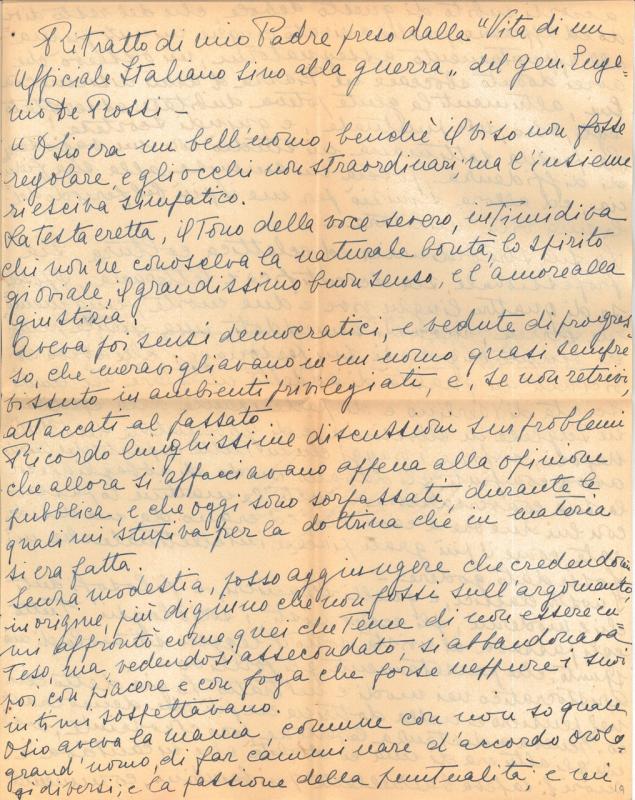 Ritratto di mio Padre preso dalla "Vita di un
Ufficiale Italiano sino alla guerra„ del gen. Euge-
nio De Rossi -
" Osio era un bell'uomo, benchè il viso non fosse
regolare, e gli occhi non straordinari, ma l'insieme
riesciva simpatico.
La testa eretta, il Tono della voce severo, intimidiva
chi non ne conosceva la naturale bontà, lo spirito
gioviale, il grandissimo buon senso, e l'amore alla
giustizia.
Aveva poi sensi democratici, e vedute di progres
so, che meravigliavano in un uomo quasi sempre
vissuto in ambienti privilegiati, e, se non retrivi,
attaccati al passato.
Ricordo lunghissime discussioni sui problemi
che allora si affacciavano appena alla opinione
pubblica, e che oggi sono sorpassati, durante le
quali mi stupiva per la dottrina che in materia
si era fatta.
Senza modestia, posso aggiungere che credendomi
in origine, più digiuno che non fossi sull'argomento
mi affrontò come quei che Teme di non essere in-
Teso, ma vedendosi assecondato, si abbandonava
poi con piacere e con foga che forse neppure i suoi
intimi sospettavano.
Osio aveva la mania, comune con non so quale
grand'uomo, di far camminare d'accordo orolo-
gi diversi; e la passione della puntualità; e mi